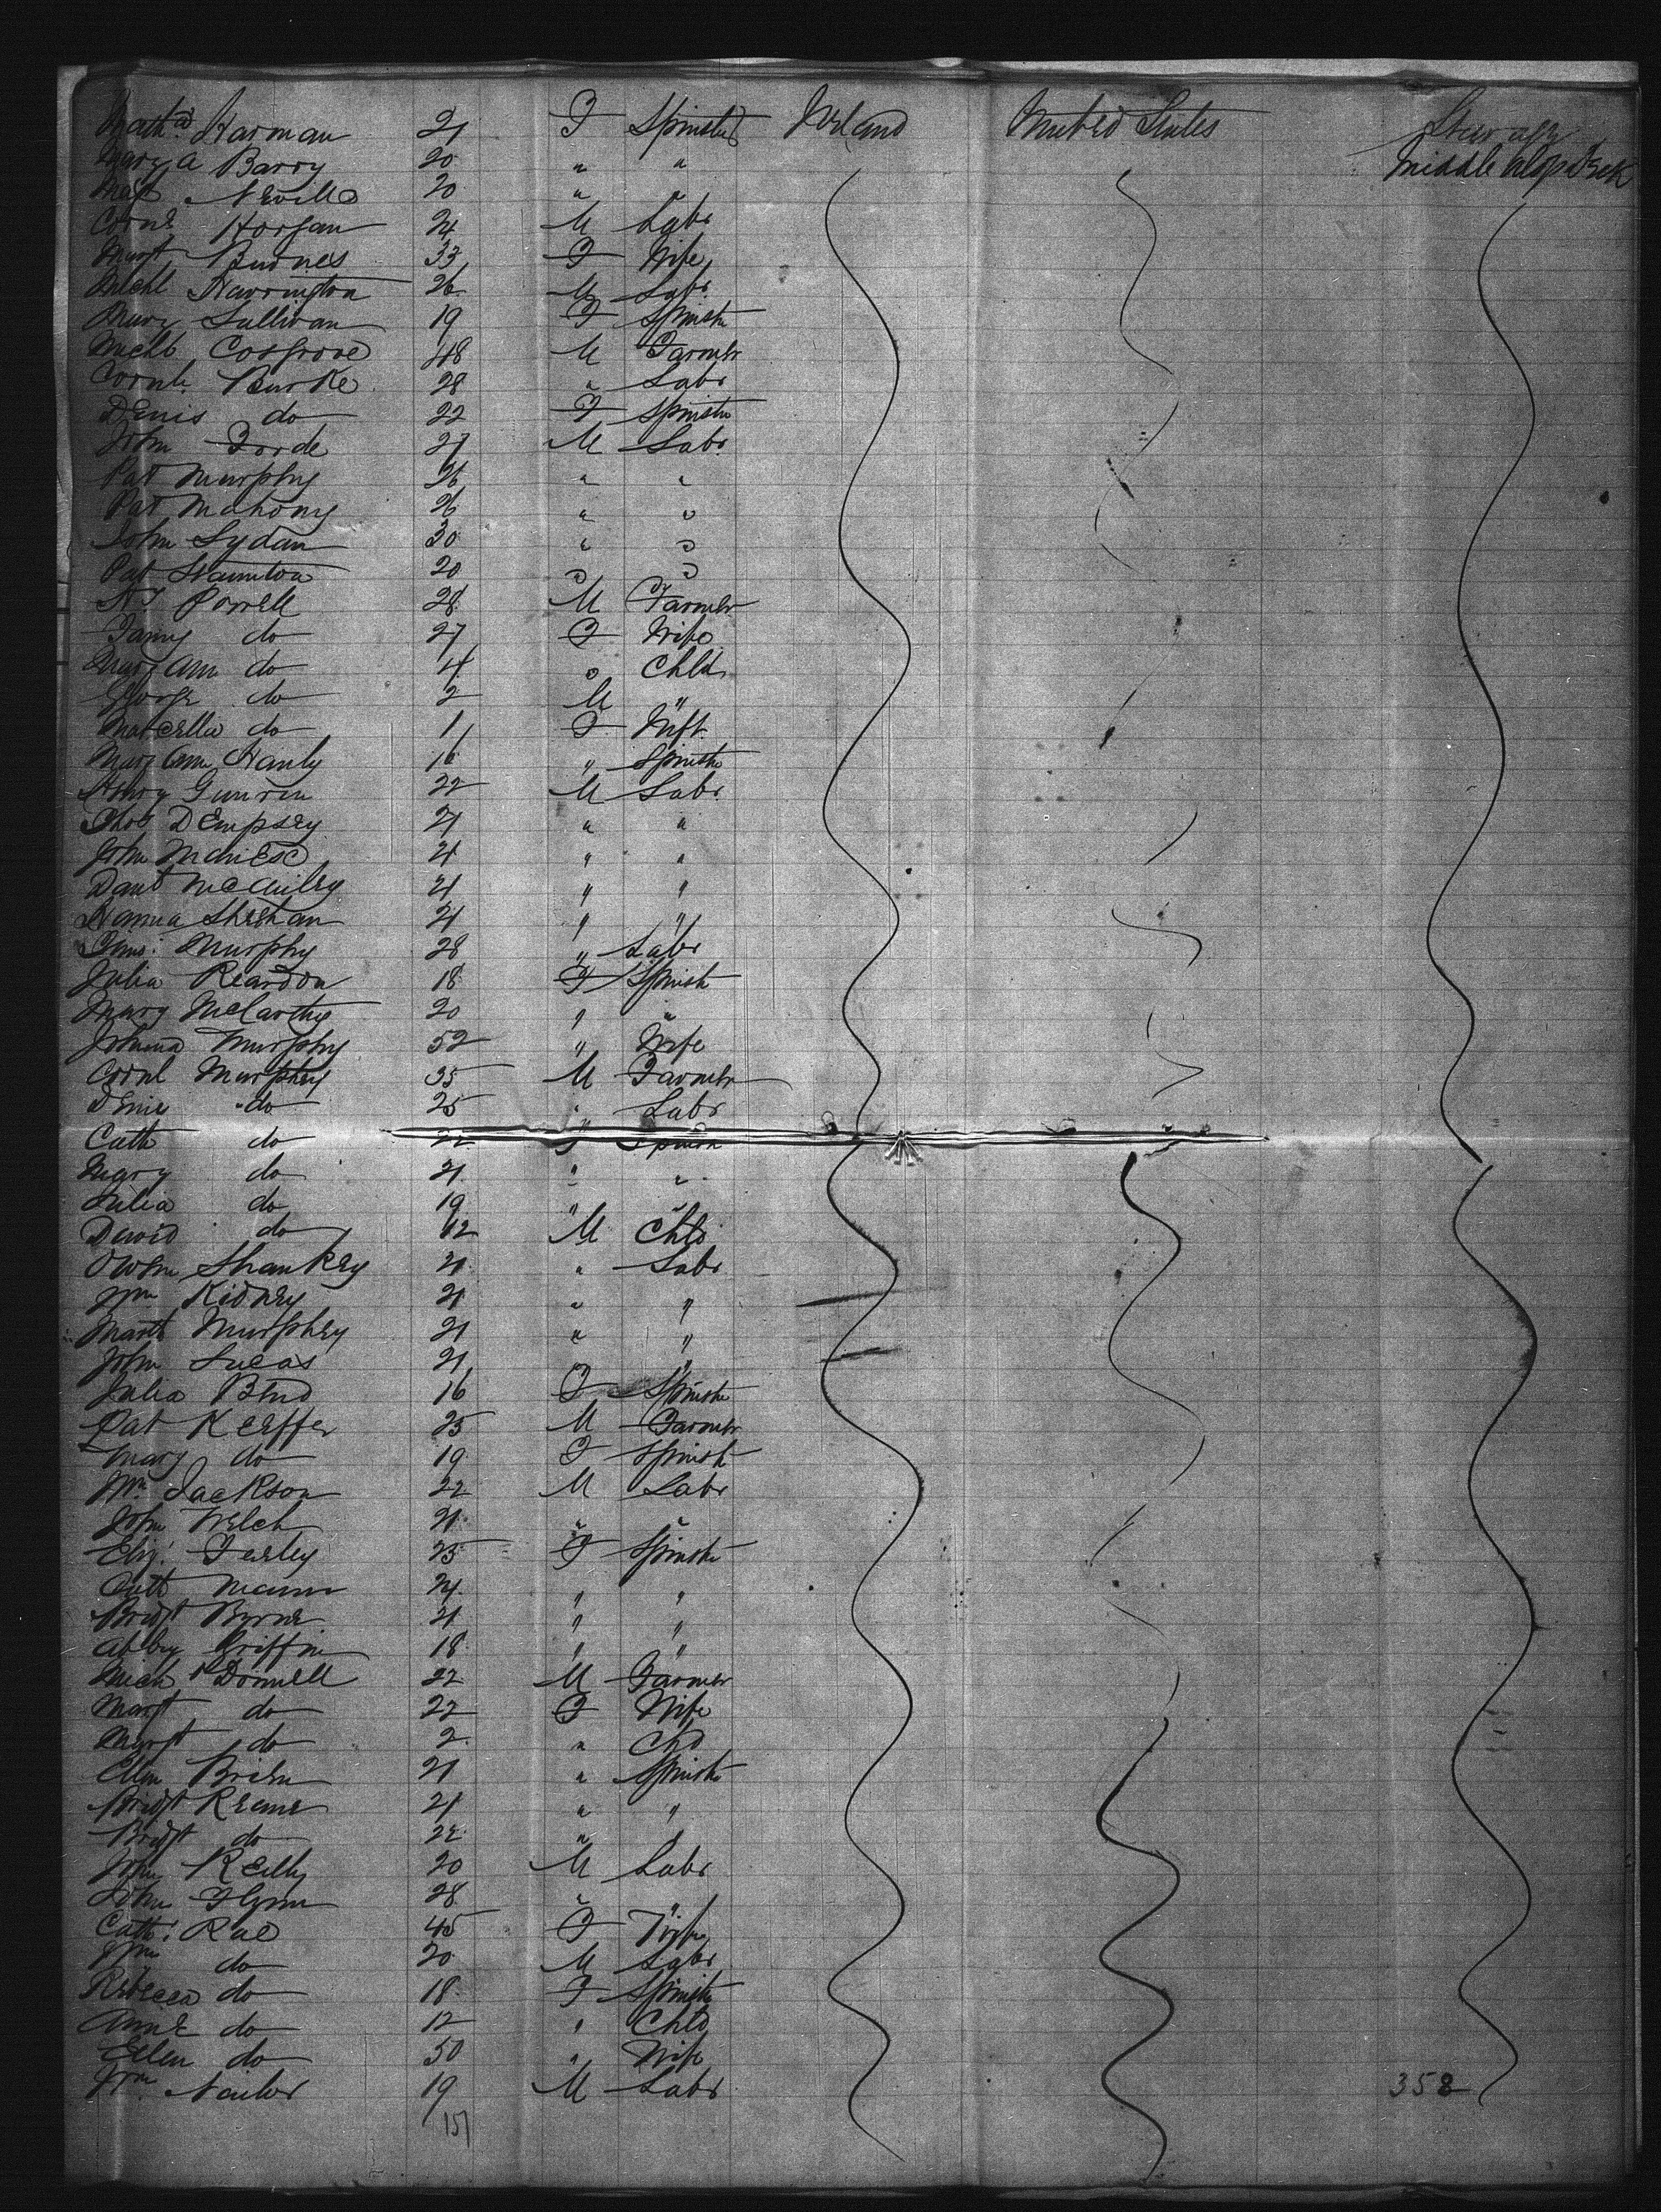 Harman 21 F Spinster Ireland United States Steerage
Mary A Barry 20 " " Middle Deck
Neville 20 " "
Corns Horgan 24 M Labr
Margt Burnes 33 F Wife
Michl Harrington 26 M Labr
Mary Sullivan 19 F Spinstr
Michl Cosgrove 48 M Farmer
Cornl Burke 28 " Labr
Denis do 22 F Spinstr
John Forde 27 M Labr
Pat Murphy 26 " "
Pat Mahony 26 " "
John Lydan 30 " "
Pat 20 " "
Powell 28 M Farmer
Fanny do 27 F Wife
Mary Ann do 4 " Chld
George do 2 M "
Marcella do 1 F Inft
Mary Ann Hanly 16 " Spinstr
Henry 22 M Labr
Thos Dempsey 21 " "
John 21 " "
Danl 21 " "
Hanna Sheehan 21 " "
Murphy 28 " Labr
Julia Reardon 18 F Spinst
Mary McCarthy 20 " "
Murphy 52 " Wife
Cornl Murphy 35 M Farmer
Denis do 25 " Labr
Cath do 22 F Spinstr
Mary do 21 " "
Julia do 19 " "
David do 12 M Chld
Owen Shankey 21 " Labr
Wm Kidney 21 " "
Murphey 21 " "
John Lucas 21 " "
Julia 16 F Spinstr
Pat Keeffe 25 M Farmer
Mary do 19 F Spinstr
Wm Jackson 22 M Labr
John Welch 21 " "
Eliz. 25 F Spinstr
Cath 24 " "
Bridgt Byrne 21 " "
Abbey Griffin 18 " "
22 M Farmer
Margt do 22 F Wife
Margt do 2 " Chd
Ellen Brien 21 " Spinstr
Bridgt Keane 21 " "
Bridgt do 22 " "
John Reilly 20 M Labr
John Flynn 28 " "
Cath: Rae 45 F Wife
Wm do 20 M Labr
Rebecca do 18 F Spinstr
Anne do 12 " Chld
Ellen do 50 " Wife
Wm Nailor 19 M Labr 358
151